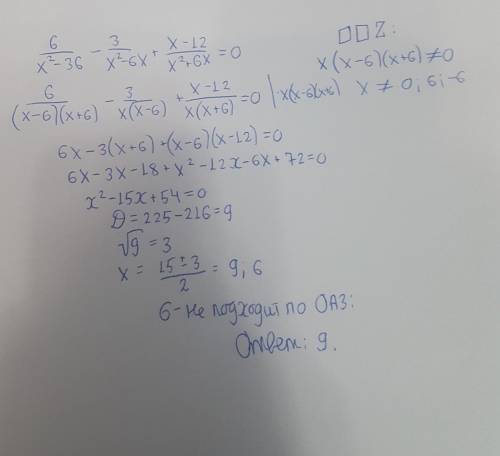 6/(x²-36) - 3/(x²-6x) + (x-12)/(x²+6x) = 0
□□Z:
x(x-6)(x+6)≠0
6/((x-6)(x+6)) - 3/(x(x-6)) + (x-12)/(x(x+6)) = 0 |·x(x-6)(x+6)
x ≠ 0, 6; -6
6x-3(x+6)+(x-6)(x-12)=0
6x-3x-18+x²-12x-6x+72=0
x²-15x+54=0
D=225-216=9
√9 = 3
x = (15±3)/2 = 9; 6
6-не подходит по ОАЗ:
Ответ: 9.